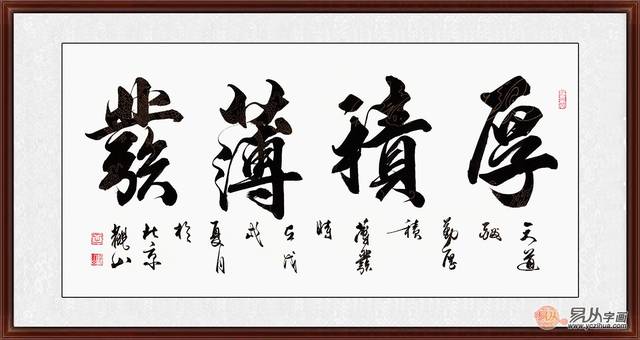 厚積薄發
天道
酬
勤厚
積
薄發
時
在戊
戌
夏月
於
北京
觀山
易从字画
www.yczihua.com